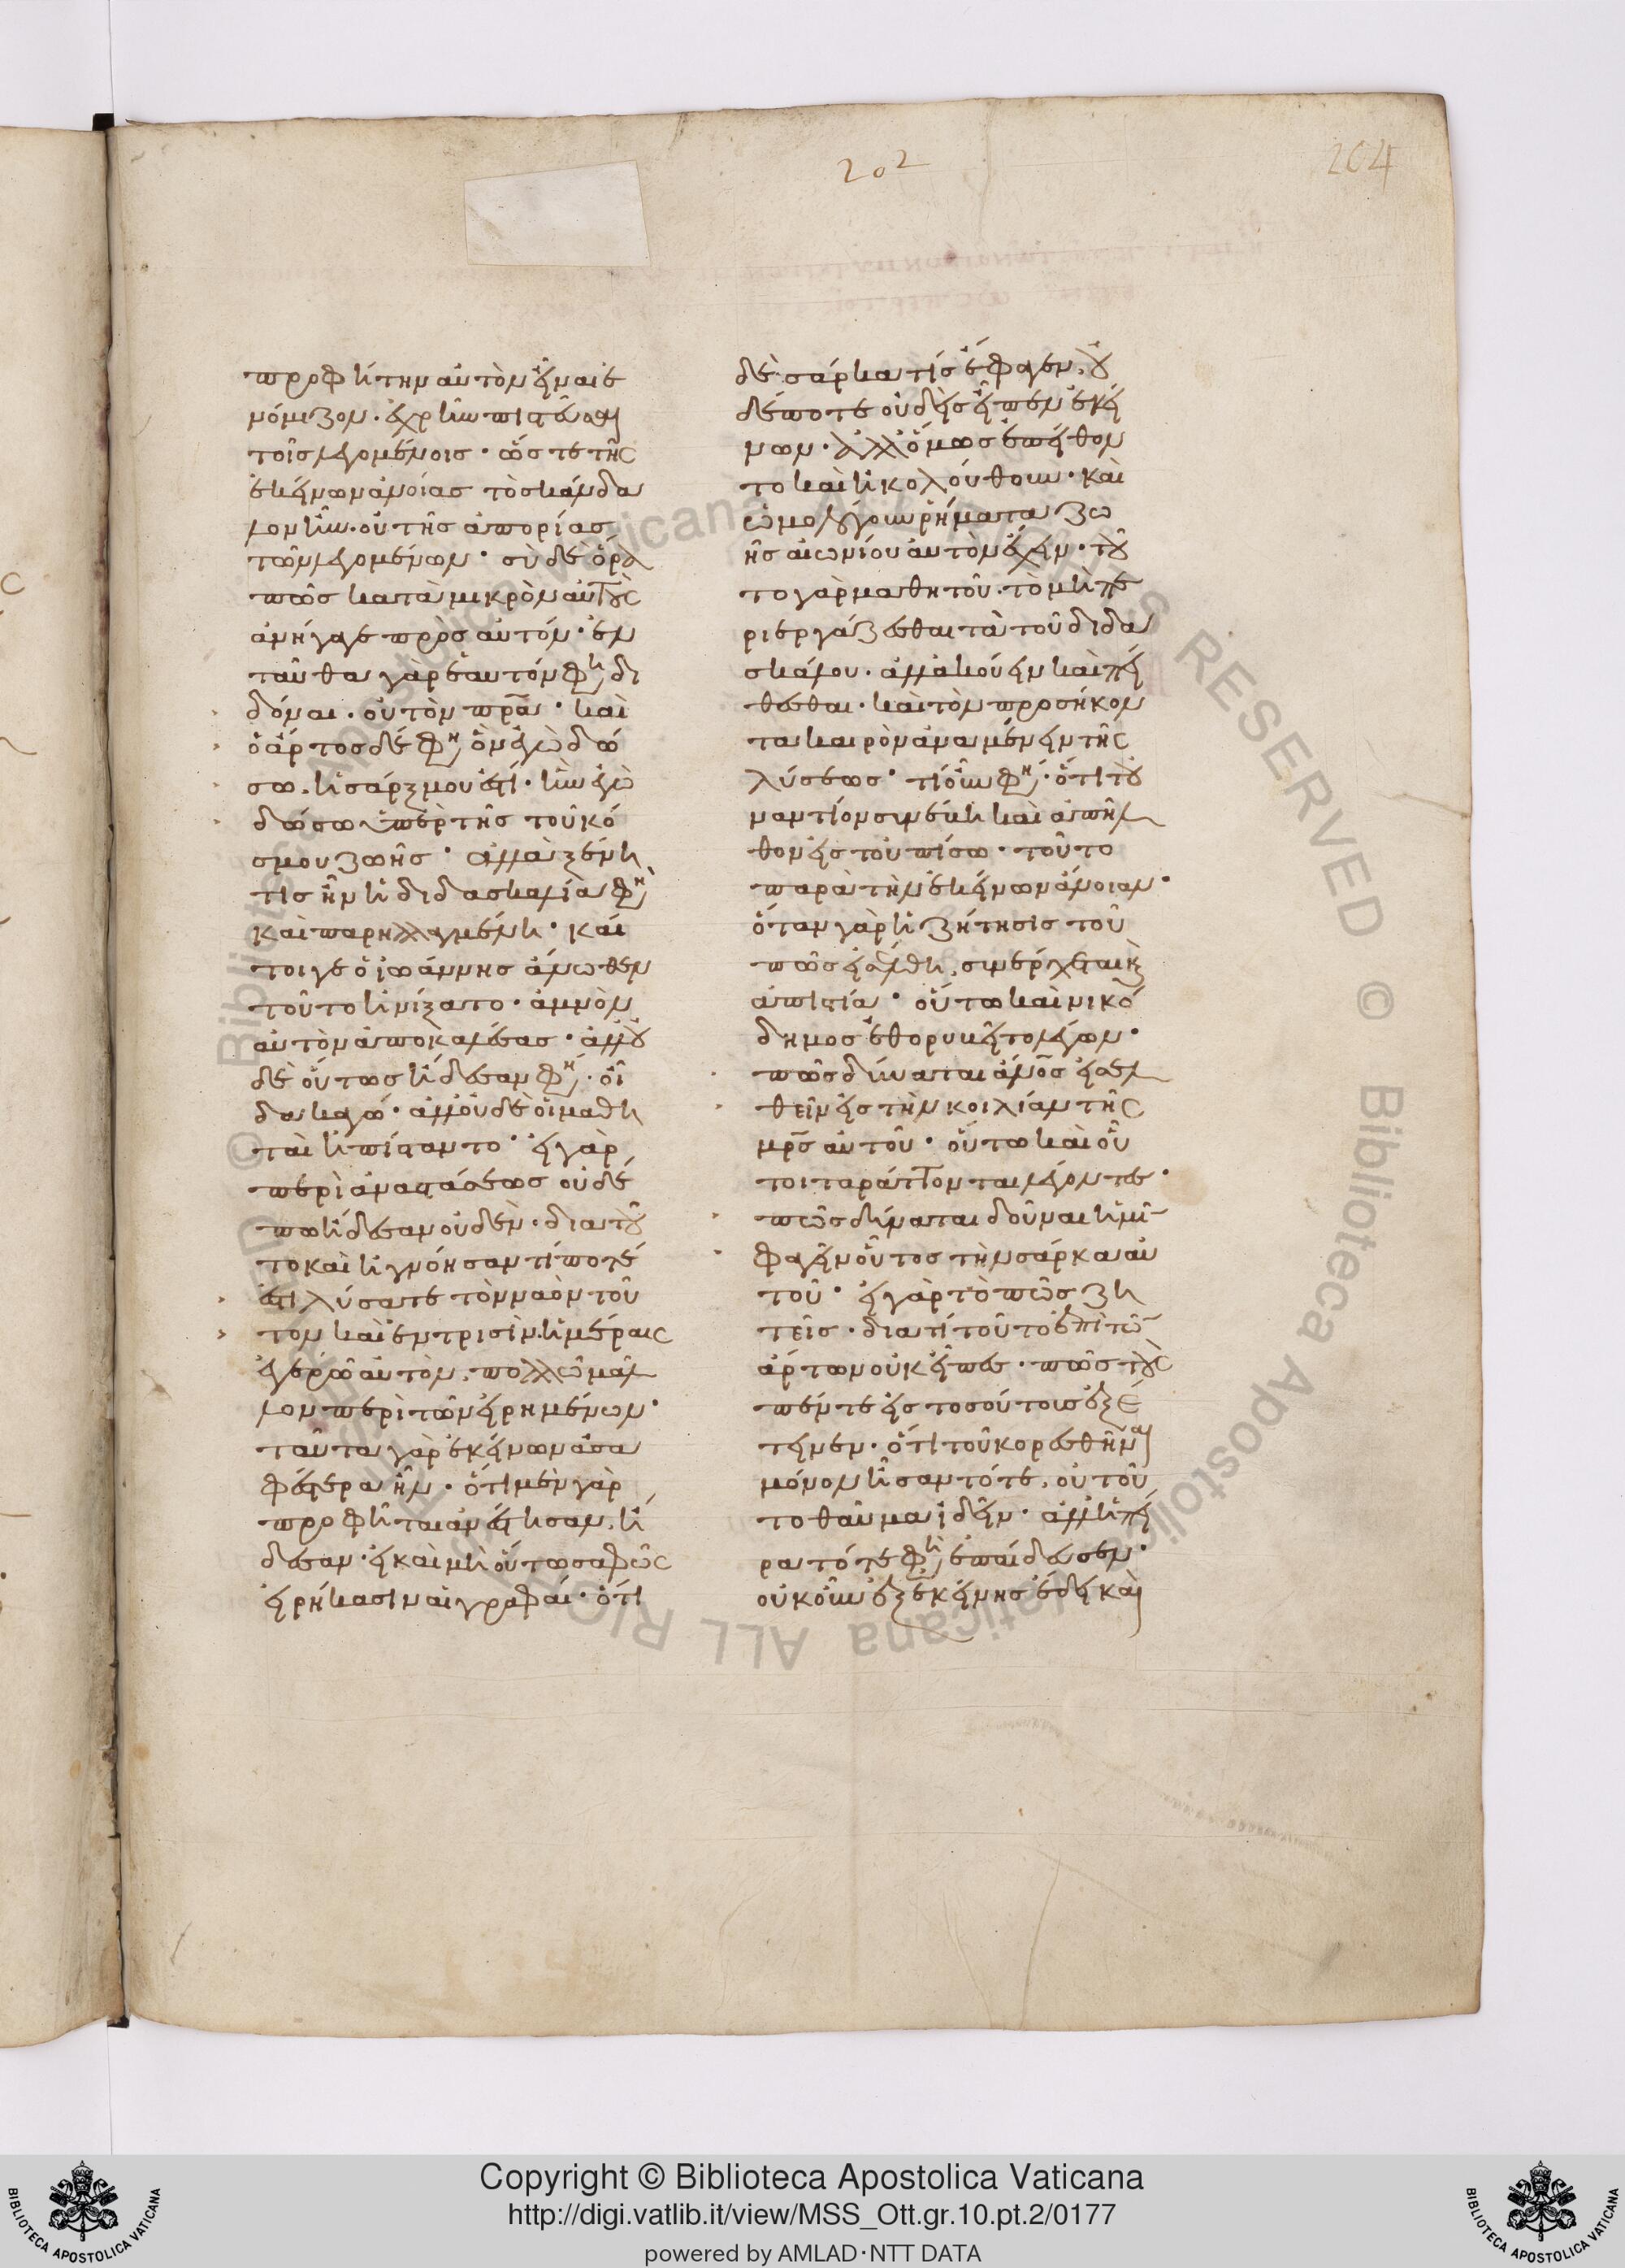 202
204
προφήτην αὐτὸν εἶναι ἐ
νόμιζον. ἐχρῆν πιστεῦσαι
τοῖς λεγομένοις. ὥστε τῆς
ἐκείνων ἀνοίας τὸ σκάνδα
λον ἦν. οὐ τῆς ἀπορίας
τῶν λεγομένων. σὺ δὲ ὅρα
πῶς κατὰ μικρὸν αὐτοὺς
ἀνήγαγε πρὸς αὐτόν. ἐν
ταῦθα γὰρ ἑαυτόν φη δι
δόναι. οὐ τὸν πρα. καὶ
ὁ ἄρτος δέ φη ὃν ἐγὼ δώ
σω. ἡ σάρξ μου ἐστί. ἣν ἐγὼ
δώσω ὑπὲρ τῆς τοῦ κό
σμου ζωῆς. ἀλλὰ ξένη
τις ἦν ἡ διδασκαλία φη
καὶ παρηλλαγμένη. καί
τοι γε ὁ ἰωάννης ἄνωθεν
τοῦτο ᾐνίξατο. ἀμνὸν
αὐτὸν ἀποκαλέσας. ἀλλ' οὐ
δὲ οὕτως ᾔδεσαν φη. οἶ
δα κἀγώ. ἀλλ' οὐδὲ οἱ μαθη
ταὶ ἠπίσταντο. εἰ γὰρ
περὶ ἀναστάσεως οὐδέ
πω ᾔδεσαν οὐδὲν. διὰ τοῦ
το καὶ ἠγνόησαν τί ποτέ
ἐστι λύσατε τὸν ναὸν τοῦ
τον καὶ ἐν τρισὶν ἡμέραις
ἐγερῶ αὐτὸν. πολλῶ μᾶλ
λον περὶ τῶν εἰρημένων.
ταῦτα γὰρ ἐκείνων ἀσα
φέστερα ἦν. ὅτι μὲν γὰρ
προφῆται ἀνέστησαν, ᾔ
δεσαν. εἰ καὶ μὴ οὕτω σαφῶς
εἰρήκασιν αἱ γραφαί. ὅτι
δὲ σάρκα τίς ἔφαγεν, οὐ
δέποτε οὐδεὶς εἶπεν ἐκεί
νων. ἀλλ' ὅμως ἐπείθον
το καὶ ἠκολούθουν. καὶ
ὡμολόγουν ῥήματα ζω
ῆς αἰωνίου αὐτὸν ἔχειν. τοῦ
το γὰρ μαθητοῦ. τὸ μὴ πε
ριεργάζεσθαι τὰ τοῦ διδα
σκάλου. ἀλλὰ ἀκούειν καὶ πεί
θεσθαι. καὶ τὸν προσήκον
τα καιρὸν ἀναμένειν τῆς
λύσεως. τί οὖν φη. ὅτι τοὐ
ναντίον συνέβη καὶ ἀπῆλ
θον εἰς τοὐπίσω. τοῦτο
παρὰ τὴν ἐκείνων ἄνοιαν.
ὅταν γὰρ ἡ ζήτησις τοῦ
πῶς εἰσέλθη, συνέρχεται καὶ
ἀπιστία. οὕτω καὶ νικό
δημος ἐθορυβεῖτο λέγων.
πῶς δύναται ἄνος εἰσελ
θεῖν εἰς τὴν κοιλίαν τῆς
μρς αὐτοῦ. οὕτω καὶ οὗ
τοι ταράττονται λέγοντες.
πῶς δύναται δοῦναι ἡμῖ
φαγεῖν οὗτος τὴν σάρκα αὐ
τοῦ. εἰ γὰρ τὸ πῶς ζη
τεῖς. διατί τοῦτο ἐπὶ τῶ
ἄρτων οὐκ εἶπες. πῶς τοὺς
πέντε εἰς τοσούτους ἐξέ
τεινεν. ὅτι τοῦ κορεσθῆναι
μόνον ἦσαν τότε, οὐ τοῦ
τὸ θαῦμα ἰδεῖν. ἀλλ' ἡ πεῖ
ρα τότε φη ἐπαίδευσεν.
οὐκοῦν ἐξ ἐκείνης ἔδει καὶ
Copyright © Biblioteca Apostolica Vaticana
http://digi.vatlib.it/view/MSS_Ott.gr.10.pt.2/0177
powered by AMLAD·NTT DATA